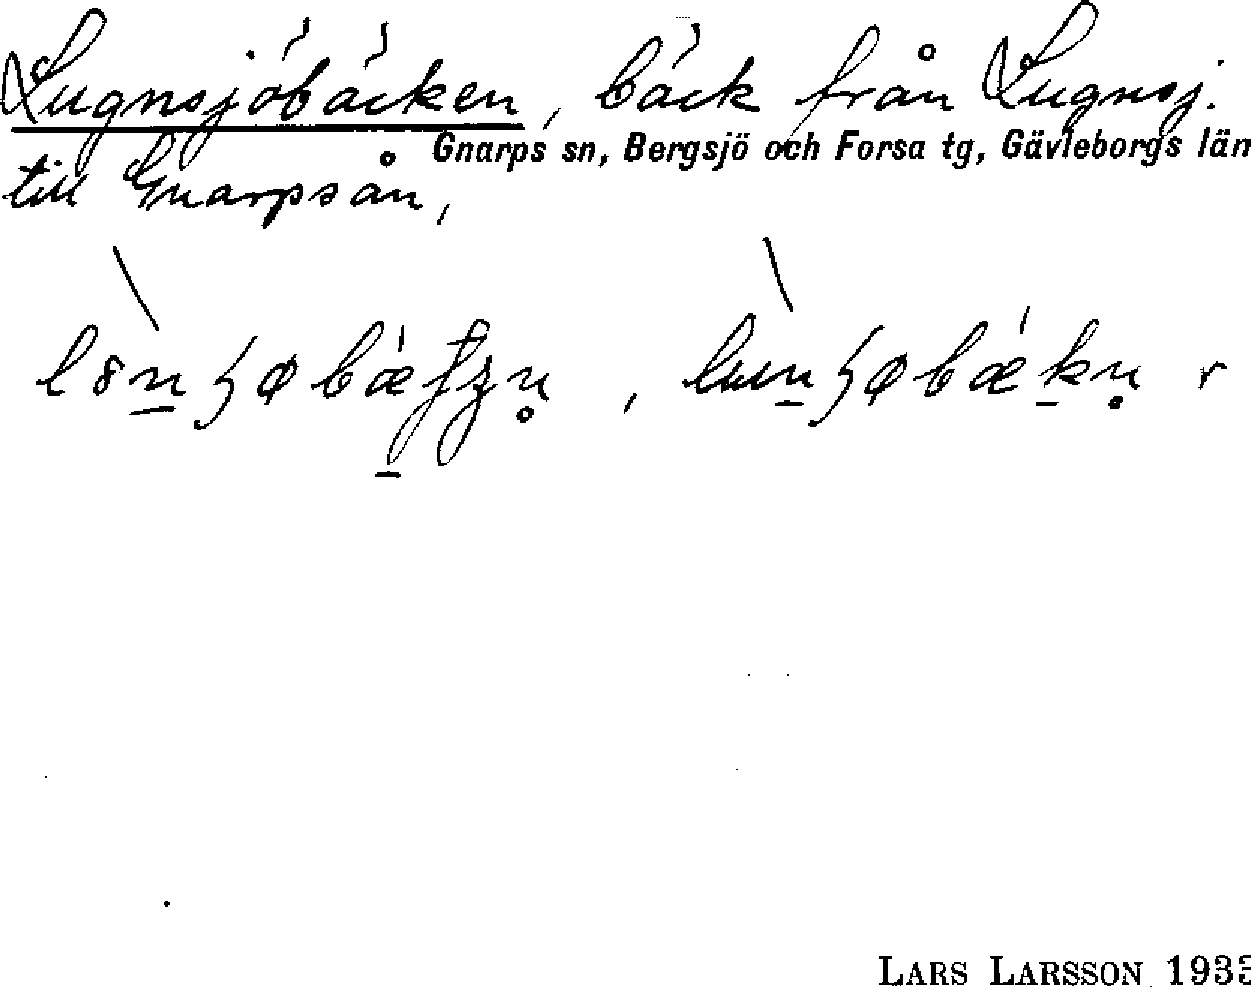 Lugnsjöbäcken, bäck från Lugnsj.
Gnarps sn, Bergsjö och Forsa tg, Gävleborgs län
till Gnarpsån,
LARS LARSSON 193